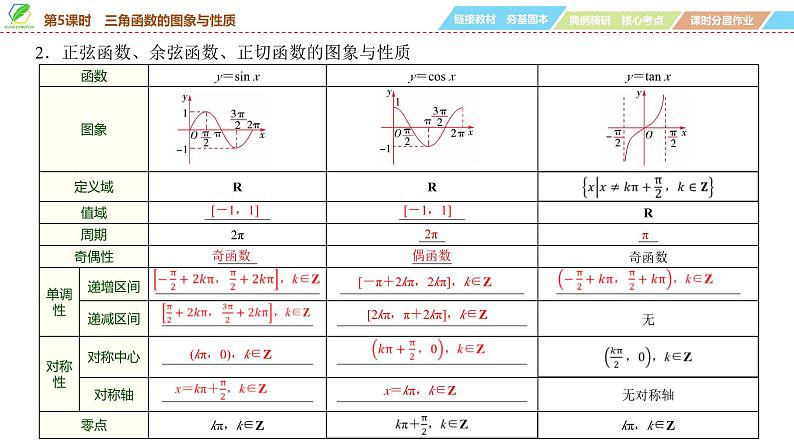 第5课时 三角函数的图象与性质
链接教材 夯基固本
典例精研 核心考点
课时分层作业
2．正弦函数、余弦函数、正切函数的图象与性质
函数 y＝sin x y＝cos x y＝tan x
图象
y 1 O π/2 π 3π/2 2π x －1
y 1 O π/2 π 3π/2 2π x －1
y －π/2 O π/2 x
定义域 R R {x|x≠kπ＋π/2，k∈Z}
值域 [－1，1] [－1，1] R
周期 2π 2π π
奇偶性 奇函数 偶函数 奇函数
单调性
递增区间 [－π/2＋2kπ，π/2＋2kπ]，k∈Z [－π＋2kπ，2kπ]，k∈Z (－π/2＋kπ，π/2＋kπ)，k∈Z
递减区间 [π/2＋2kπ，3π/2＋2kπ]，k∈Z [2kπ，π＋2kπ]，k∈Z 无
对称性
对称中心 (kπ，0)，k∈Z (kπ＋π/2，0)，k∈Z (kπ/2，0)，k∈Z
对称轴 x＝kπ＋π/2，k∈Z x＝kπ，k∈Z 无对称轴
零点 kπ，k∈Z kπ＋π/2，k∈Z kπ，k∈Z